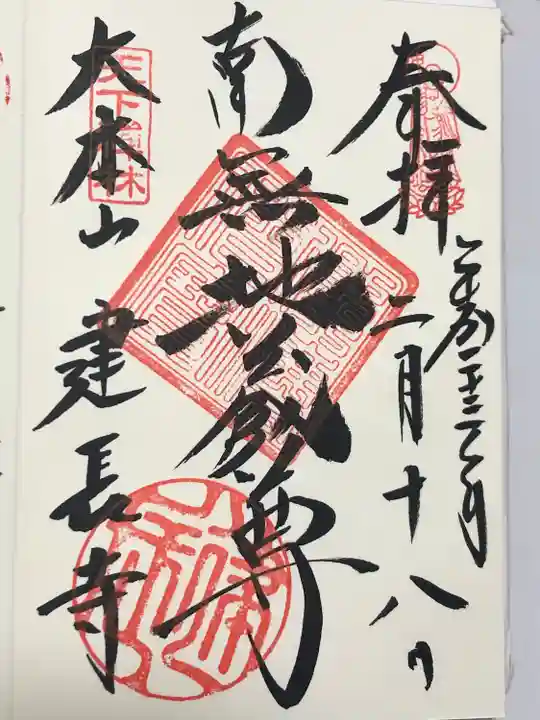 奉拝
二月十八日
南無地蔵尊
大本山 建長寺
天下禅林